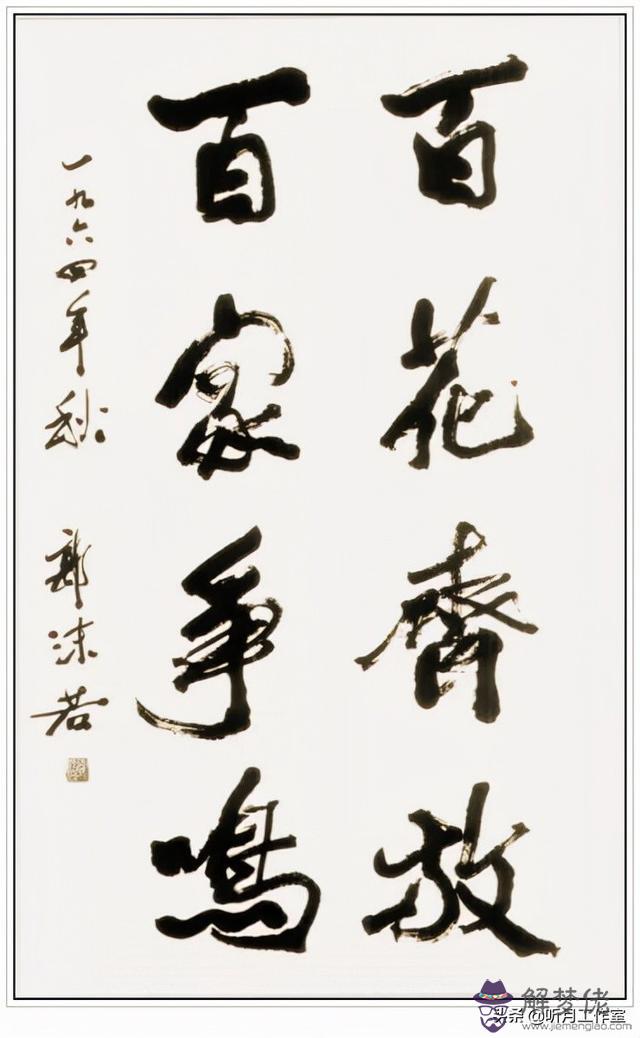 百花齊放
百家争鳴
一九六四年秋
郭沫若
解梦佬
头条@听月工作室
www.jiemenglao.com